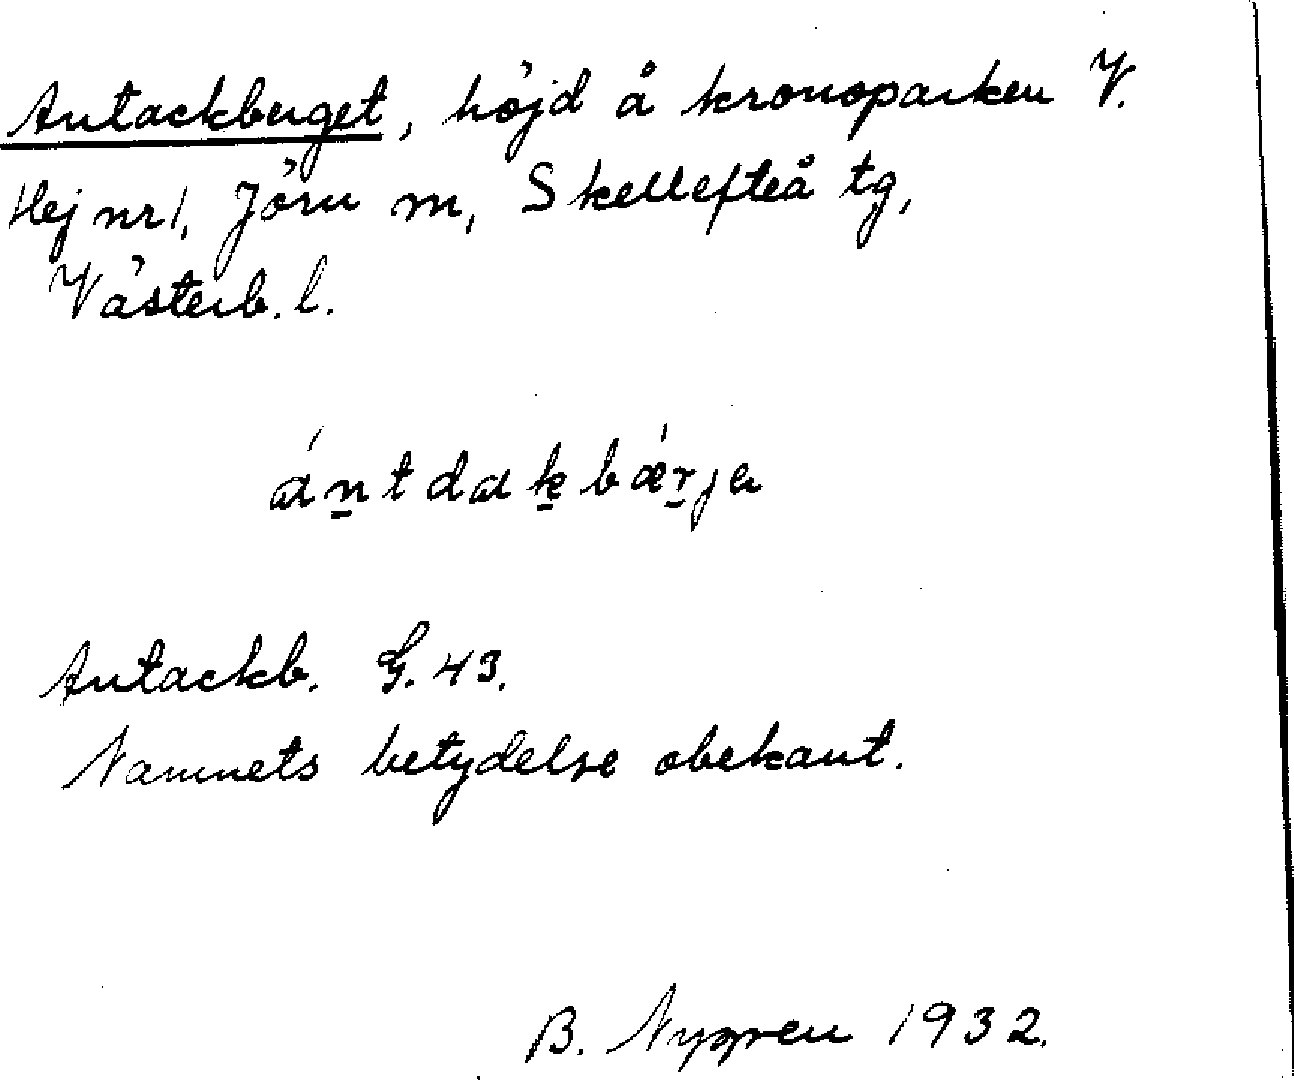 Antackberget, höjd å kronoparken V.
Hej nr 1, Jörn m, Skellefteå tg,
Västerb. l.
ántdakbǽrja
Antackb. G. 43.
Namnets betydelse obekant.
B. Nygren 1932.